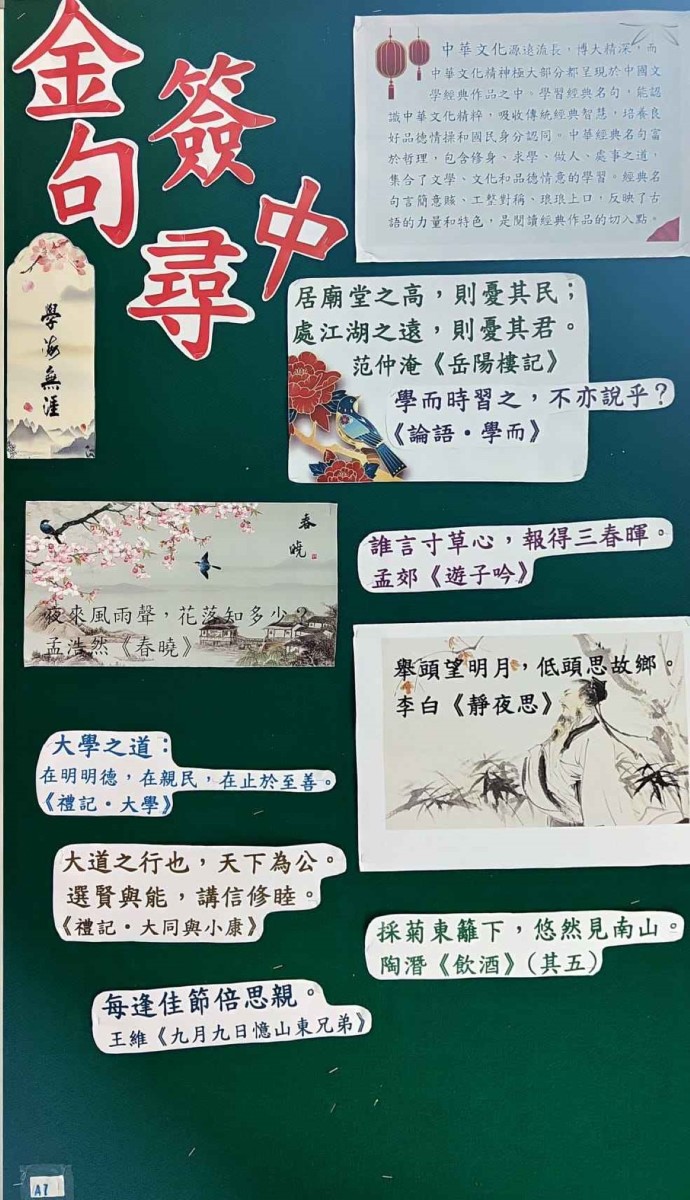 金句簽中尋
中華文化源遠流長，博大精深，而
中華文化精神極大部分都呈現於中國文
學經典作品之中。學習經典名句，能認
識中華文化精粹，吸收傳統經典智慧，培養良
好品德情操和國民身分認同。中華經典名句富
於哲理，包含修身、求學、做人、處事之道，
集合了文學、文化和品德情意的學習。經典名
句言簡意賅、工整對稱、琅琅上口，反映了古
語的力量和特色，是閱讀經典作品的切入點。
學海無涯
居廟堂之高，則憂其民；
處江湖之遠，則憂其君。
范仲淹《岳陽樓記》
學而時習之，不亦說乎？
《論語·學而》
春曉
夜來風雨聲，花落知多少？
孟浩然《春曉》
誰言寸草心，報得三春暉。
孟郊《遊子吟》
舉頭望明月，低頭思故鄉。
李白《靜夜思》
大學之道：
在明明德，在親民，在止於至善。
《禮記·大學》
大道之行也，天下為公。
選賢與能，講信修睦。
《禮記·大同與小康》
採菊東籬下，悠然見南山。
陶潛《飲酒》(其五)
每逢佳節倍思親。
王維《九月九日憶山東兄弟》
A7